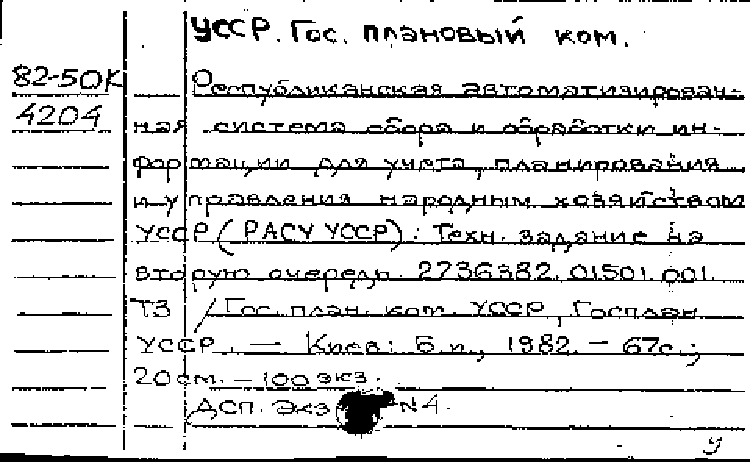 УССР. Гос. плановый ком.
82-50К Республиканская автоматизирован-
4204 ная система сбора и обработки ин-
формации для учета, планирования
и управления народным хозяйством
УССР (РАСУ УССР): Техн. задание на
вторую очередь. 2736382.01501.001.
ТЗ / Гос. план. ком. УССР, Госплан
УССР. — Киев: Б.и., 1982. — 67с.;
20см. — 100 экз.
ДСП. Экз. N4.
У